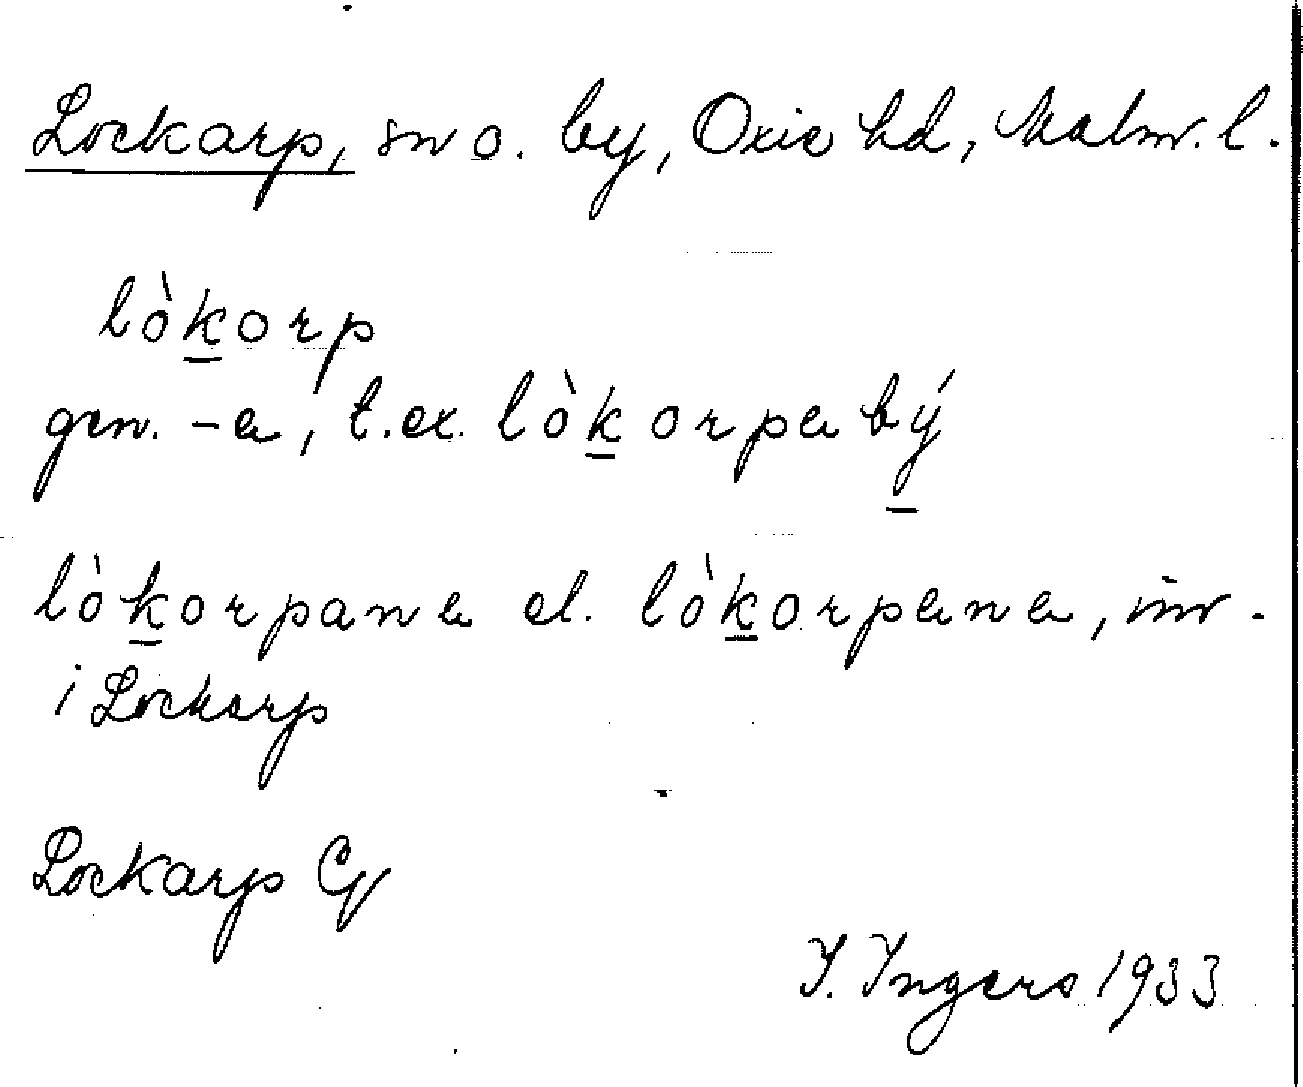 Lockarp, sn o. by, Oxie hd, Malm. l.
lòkorp
gen. -a, t.ex. lòkorpabý
lòkorpana el. lòkorpana, inv.
i Lockarp
Lockarp
I. Ingers 1933